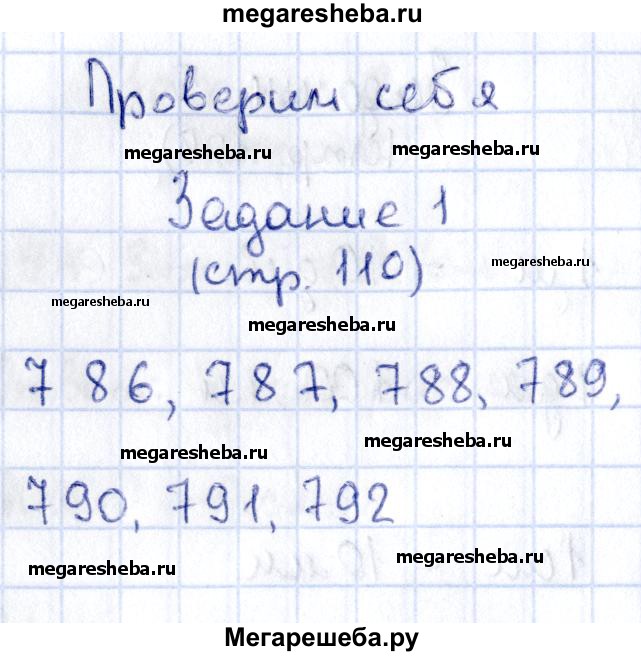 megaresheba.ru
Проверим себя
megaresheba.ru megaresheba.ru
Задание 1
(стр. 110)
megaresheba.ru
megaresheba.ru
megaresheba.ru
786, 787, 788, 789,
megaresheba.ru megaresheba.ru
790, 791, 792
megaresheba.ru megaresheba.ru
Мегарешеба.ру